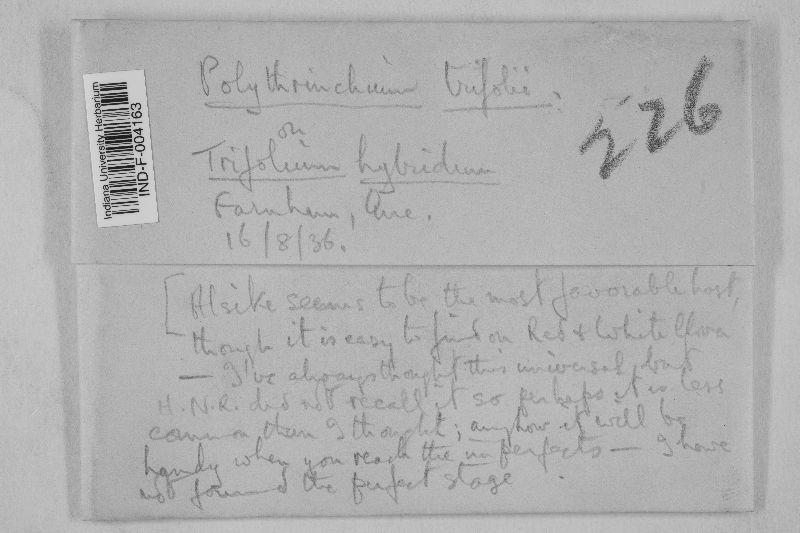 Polythrinchium trifolii.
226
on
Trifolium hybridum
Farnham, Que.
16/8/36.
Indiana University Herbarium
IND-F-004163
[Alsike seems to be the most favorable host,
though it is easy to find on Red & White Clover
— I've always thought this universal, but
H.N.R. did not recall it so perhaps it is less
common than I thought; anyhow it will be
handy when you reach the imperfects — I have
not found the perfect stage.